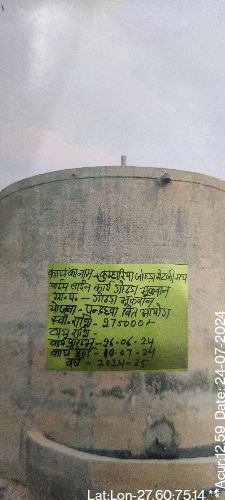 कार्य का नाम - कुम्हारिया जोहड़ मेटकी मय
पाईप लाईन कार्य गोडास
ग्रा.पं. - गोडास
योजना - पन्द्रहवा वित आयोग
स्वी. राशि - 275000/-
व्यय राशि -
कार्य प्रारम्भ - 26-06-24
कार्य पूर्ण - 10-07-24
वर्ष - 2024-25
Lat:Lon-27.60:7514
Acur:12.59 Date: 24-07-2024